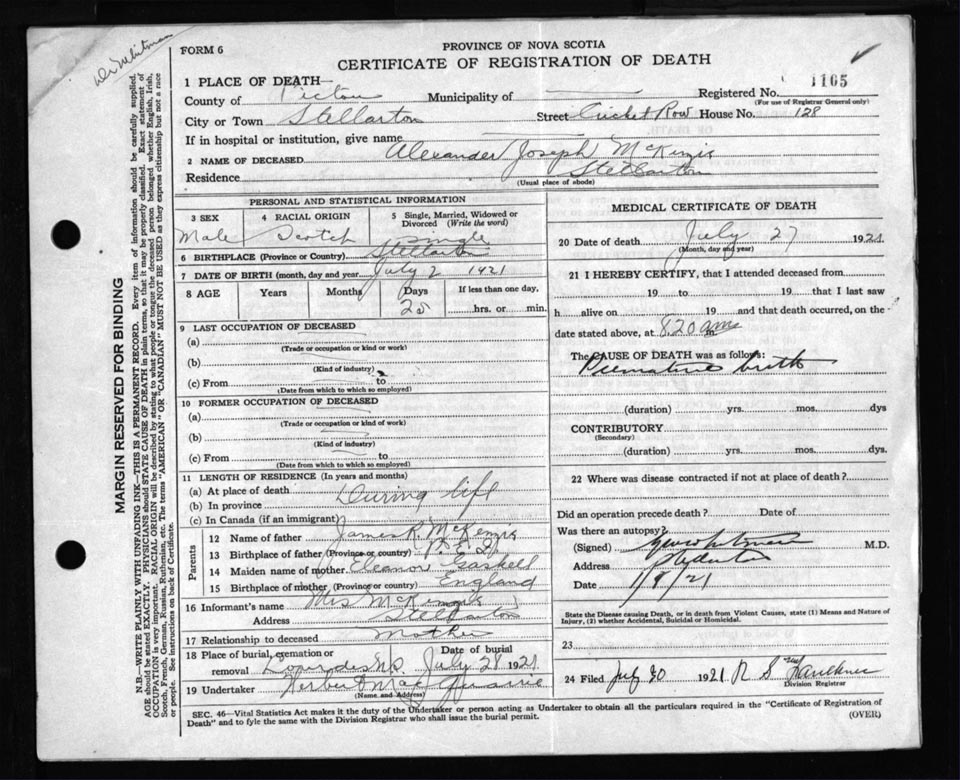 Dr Whitman
FORM 6
PROVINCE OF NOVA SCOTIA
CERTIFICATE OF REGISTRATION OF DEATH
1105
1 PLACE OF DEATH
County of Pictou Municipality of Registered No.
(For use of Registrar General only)
City or Town Stellarton Street Cricket Row House No. 128
If in hospital or institution, give name
2 NAME OF DECEASED Alexander Joseph McKenzie
Residence Stellarton
(Usual place of abode)
PERSONAL AND STATISTICAL INFORMATION
3 SEX 4 RACIAL ORIGIN 5 Single, Married, Widowed or Divorced (Write the word)
Male Scotch Single
6 BIRTHPLACE (Province or Country) Stellarton
7 DATE OF BIRTH (month, day and year) July 2 1921
8 AGE Years Months Days If less than one day,
25 hrs. or min.
9 LAST OCCUPATION OF DECEASED
(a)
(Trade or occupation or kind or work)
(b)
(Kind of industry)
(c) From to
(Date from which to which so employed)
10 FORMER OCCUPATION OF DECEASED
(a)
(Trade or occupation or kind or work)
(b)
(Kind of industry)
(c) From to
(Date from which to which so employed)
11 LENGTH OF RESIDENCE (In years and months)
(a) At place of death During life
(b) In province
(c) In Canada (if an immigrant)
Parents
12 Name of father James R. McKenzie
13 Birthplace of father (Province or country) P.E.I.
14 Maiden name of mother Eleanor Gaskell
15 Birthplace of mother (Province or country) England
16 Informant's name Mrs McKenzie
Address Stellarton
17 Relationship to deceased Mother
18 Place of burial, cremation or removal Date of burial
Lourdes NS July 28 1921
19 Undertaker Herbert MacQuarrie
(Name and Address)
MEDICAL CERTIFICATE OF DEATH
20 Date of death July 27 1921
(Month, day and year)
21 I HEREBY CERTIFY, that I attended deceased from
19 to 19 that I last saw
h alive on 19 and that death occurred, on the
date stated above, at 8.20 am m.
The CAUSE OF DEATH was as follows:
Premature birth
(duration) yrs. mos. dys
CONTRIBUTORY
(Secondary)
(duration) yrs. mos. dys
22 Where was disease contracted if not at place of death?
Did an operation precede death? Date of
Was there an autopsy?
(Signed) M.D.
Address
Date 1/8/21
State the Disease causing Death, or in death from Violent Causes, state (1) Means and Nature of
Injury, (2) whether Accidental, Suicidal or Homicidal.
23
24 Filed July 30 1921 R S Faulkner
Division Registrar
SEC. 46—Vital Statistics Act makes it the duty of the Undertaker or person acting as Undertaker to obtain all the particulars required in the "Certificate of Registration of
Death" and to fyle the same with the Division Registrar who shall issue the burial permit. (OVER)
MARGIN RESERVED FOR BINDING
N.B.—WRITE PLAINLY WITH UNFADING INK—THIS IS A PERMANENT RECORD. Every item of information should be carefully supplied.
AGE should be stated EXACTLY. PHYSICIANS should STATE CAUSE OF DEATH in plain terms, so that it may be properly classified. Exact statement of
OCCUPATION is very important. RACIAL ORIGIN will be described by stating to what people or tongue the deceased person belonged whether English, Irish,
Scotch, French, German, Russian, Ruthenian, etc. The terms "AMERICAN" OR "CANADIAN" MUST NOT BE USED as they express citizenship but not a race
or people. See instructions on back of Certificate.